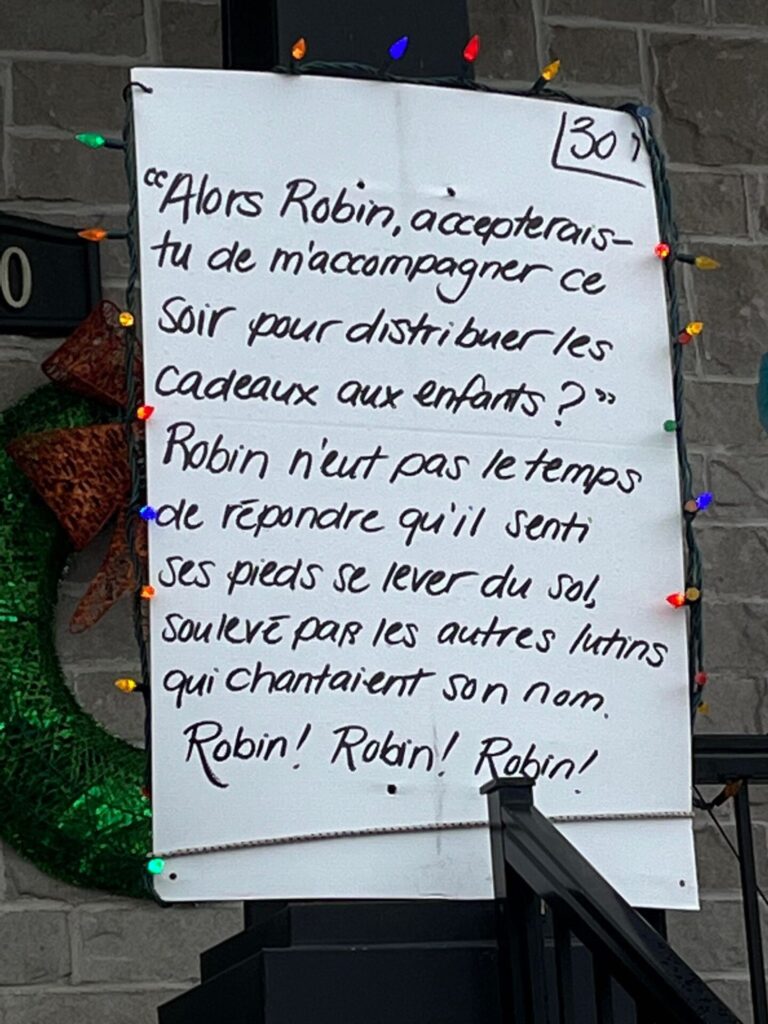 30
0
"Alors Robin, accepterais-
tu de m'accompagner ce
soir pour distribuer les
cadeaux aux enfants?"
Robin n'eut pas le temps
de répondre qu'il senti
ses pieds se lever du sol,
soulevé par les autres lutins
qui chantaient son nom.
Robin! Robin! Robin!